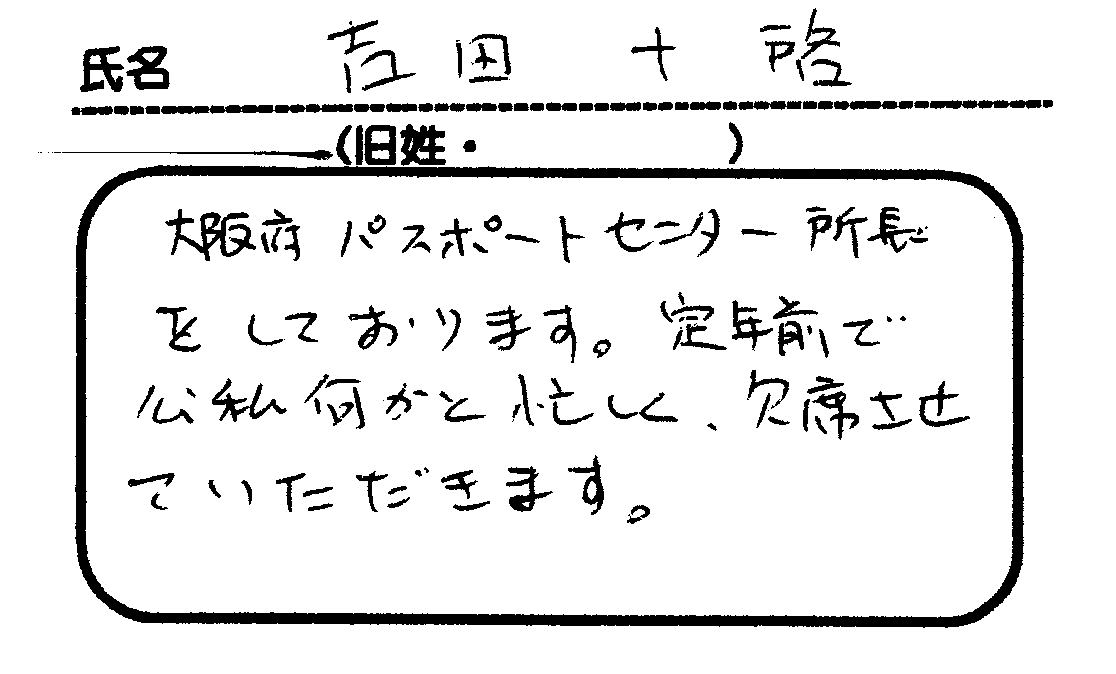 氏名 吉田 十啓
(旧姓・ )
大阪府パスポートセンター所長
をしております。定年前で
公私何かと忙しく、欠席させ
ていただきます。